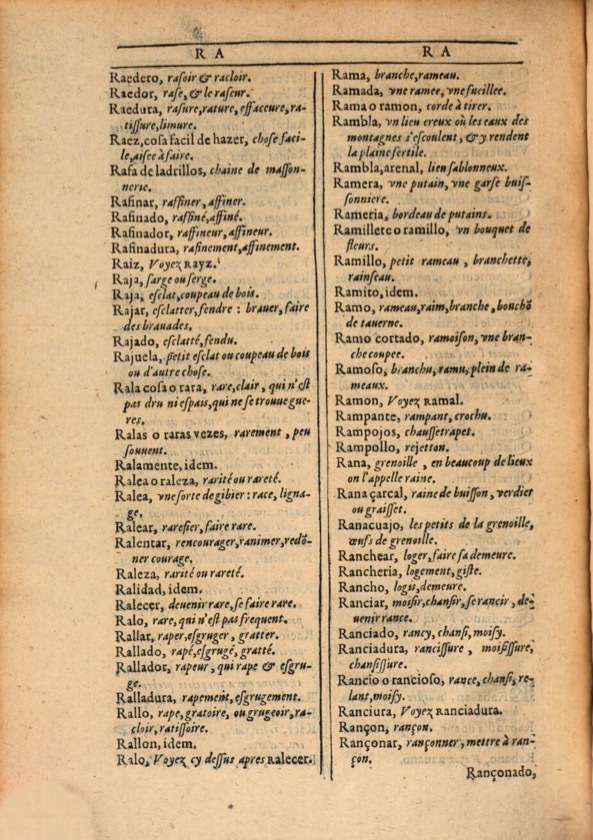 R A
Raedero, rasoir & racloir.
Raedor, rase, & le raseur.
Raedura, rasure, rature, effaceure, ra-
tissure, limure.
Raez, cosa facil de hazer, chose faci-
le, aisee à faire.
Rafa de ladrillos, chaine de masson-
nerie.
Rafinar, raffiner, affiner.
Rafinado, raffiné, affiné.
Rafinador, raffineur, affineur.
Rafinadura, rafinement, affinement.
Raiz, Voyez RAYZ.
Raja, sarge ou serge.
Raja, esclat, coupeau de bois.
Rajar, esclatter, fendre : brauer, faire
des brauades.
Rajado, esclatté, fendu.
Rajuela, petit esclat ou coupeau de bois
ou d'autre chose.
Rala cosa o rara, rare, clair, qui n'est
pas dru ni espais, qui ne se trouue gue-
res.
Ralas o raras vezes, rarement, peu
souuent.
Ralamente, idem.
Ralea o raleza, rarité ou rareté.
Ralea, vne sorte de gibier : race, ligna-
ge.
Ralear, rarefier, faire rare.
Ralentar, rencourager, ranimer, redō-
ner courage.
Raleza, rarité ou rareté.
Ralidad, idem.
Ralecer, deuenir rare, se faire rare.
Ralo, rare, qui n'est pas frequent.
Rallar, raper, esgruger, gratter.
Rallado, rapé, esgrugé, gratté.
Rallador, rapeur, qui rape & esgru-
ge.
Ralladura, rapement, esgrugement.
Rallo, rape, gratoire, ou grugeoir, ra-
cloir, ratissoire.
Rallon, idem.
Ralo, Voyez cy dessus apres Ralecer.
R A
Rama, branche, rameau.
Ramada, vne ramee, vne fueillee.
Rama o ramon, corde à tirer.
Rambla, vn lieu creux où les eaux des
montagnes s'escoulent, & y rendent
la plaine fertile.
Rambla, arenal, lieu sablonneux.
Ramera, vne putain, vne garse buis-
sonniere.
Rameria, bordeau de putains.
Ramillete o ramillo, vn bouquet de
fleurs.
Ramillo, petit rameau, branchette,
rainseau.
Ramito, idem.
Ramo, rameau, raim, branche, bouchō
de tauerne.
Ramo cortado, ramoison, vne bran-
che coupee.
Ramoso, branchu, ramu, plein de ra-
meaux.
Ramon, Voyez Ramal.
Rampante, rampant, crochu.
Rampojos, chaussetrapet.
Rampollo, rejetton.
Rana, grenoille, en beaucoup de lieux
on l'appelle raine.
Rana çarcal, raine de buisson, verdier
ou graisset.
Ranacuajo, les petits de la grenoille,
œufs de grenoille.
Ranchear, loger, faire sa demeure.
Rancheria, logement, giste.
Rancho, logis, demeure.
Ranciar, moisir, chansir, se rancir, de-
uenir rance.
Ranciado, rancy, chansi, moisy.
Ranciadura, rancissure, moisissure,
chansissure.
Rancio o rancioso, rance, chansi, re-
lant, moisy.
Ranciura, Voyez Ranciadura.
Rançon, rançon.
Rançonar, rançonner, mettre à ran-
çon.
Rançonado,